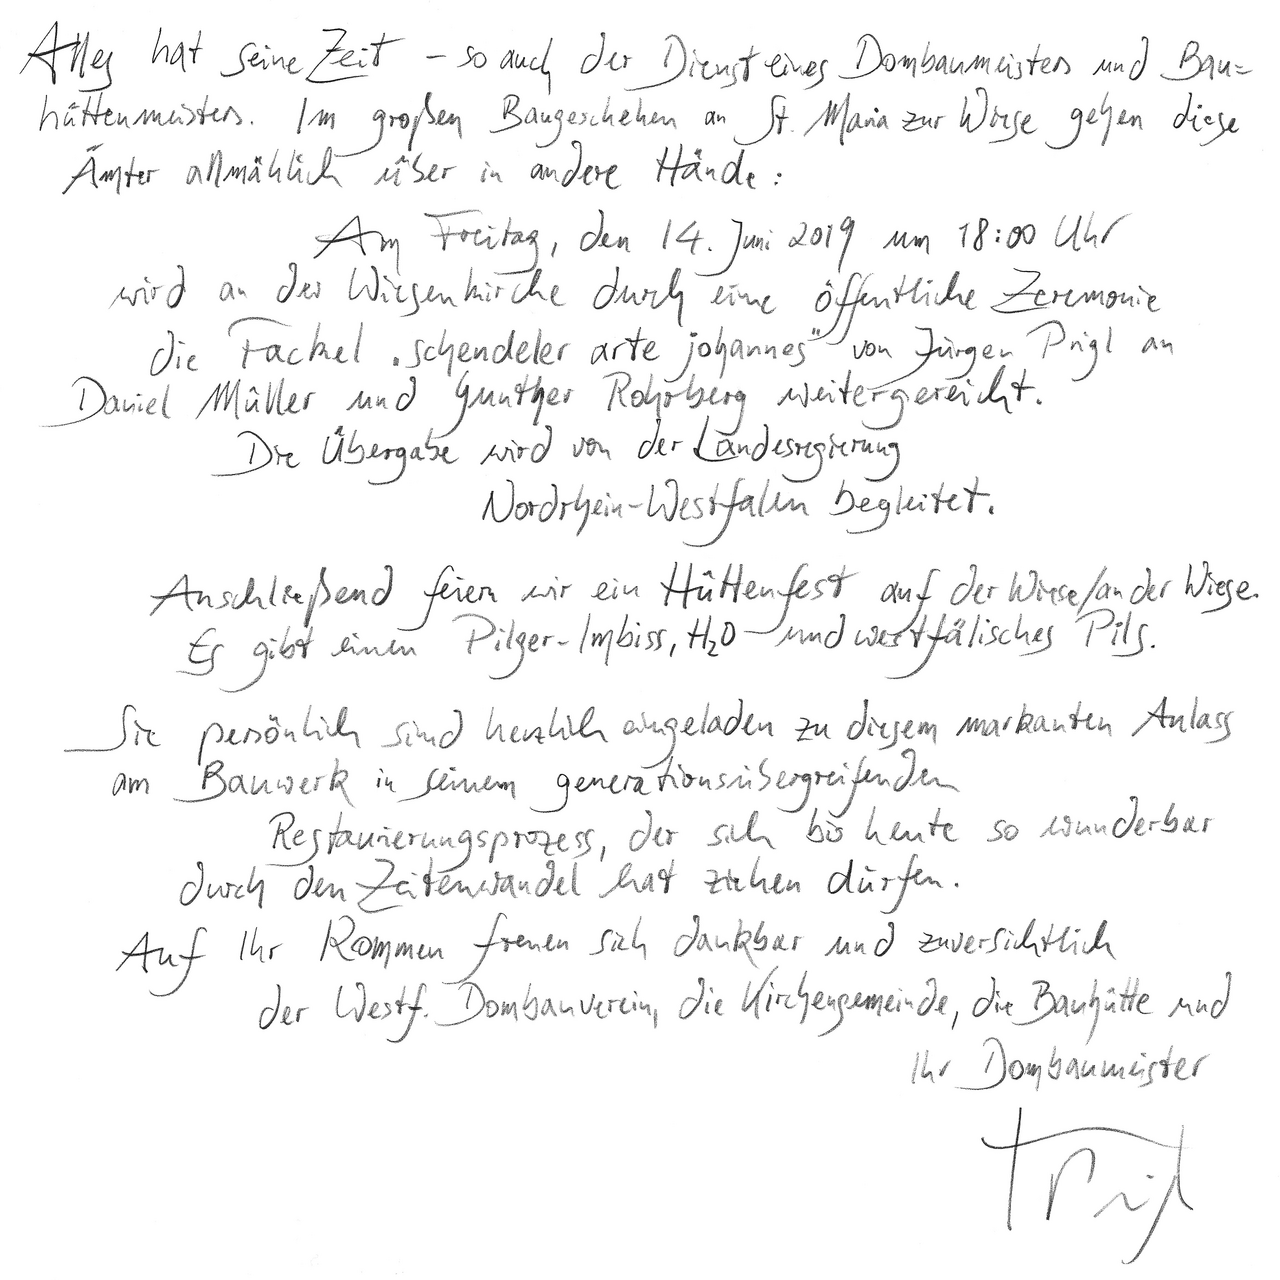 Alles hat seine Zeit – so auch der Dienst eines Dombaumeisters und Bau=
hüttenmeisters. Im großen Baugeschehen an St. Maria zur Wiese gehen diese
Ämter allmählich über in andere Hände:
Am Freitag, den 14. Juni 2019 um 18:00 Uhr
wird an der Wiesenkirche durch eine öffentliche Zeremonie
die Fackel „schendeler arte johannes" von Jürgen Prigl an
Daniel Müller und Gunther Rohrberg weitergereicht.
Die Übergabe wird von der Landesregierung
Nordrhein-Westfalen begleitet.
Anschließend feiern wir ein Hüttenfest auf der Wiese/an der Wiese.
Es gibt einen Pilger-Imbiss, H₂O und westfälisches Pils.
Sie persönlich sind herzlich eingeladen zu diesem markanten Anlass
am Bauwerk in seinem generationsübergreifenden
Restaurierungsprozess, der sich bis heute so wunderbar
durch den Zeitenwandel hat ziehen dürfen.
Auf Ihr Kommen freuen sich dankbar und zuversichtlich
der Westf. Dombauverein, die Kirchengemeinde, die Bauhütte und
Ihr Dombaumeister
Prigl